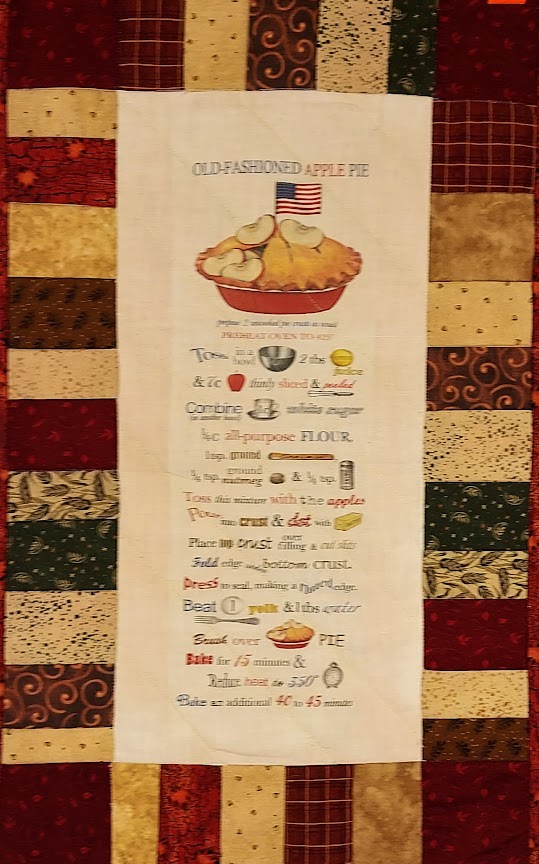 OLD-FASHIONED APPLE PIE
prepare 2 uncooked pie crusts or
PREHEAT OVEN TO 425°
Toss in a bowl 2 tbs juice
& 7c thinly sliced & peeled
Combine (in another bowl) white sugar
¼c all-purpose FLOUR
1tsp. ground
¼ tsp. ground nutmeg & ¼ tsp.
Toss this mixture with the apples
Pour into crust & dot with
Place top crust over filling & cut slits
Fold edge under bottom crust.
press to seal, making a fluted edge.
Beat 1 yolk & 1 tbs water
Brush over PIE
Bake for 15 minutes &
Reduce heat to 350°
Bake an additional 40 to 45 minutes